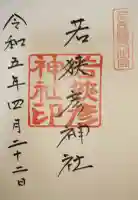 若狭彦神社
若狭彦
神社印
令和五年四月二十二日